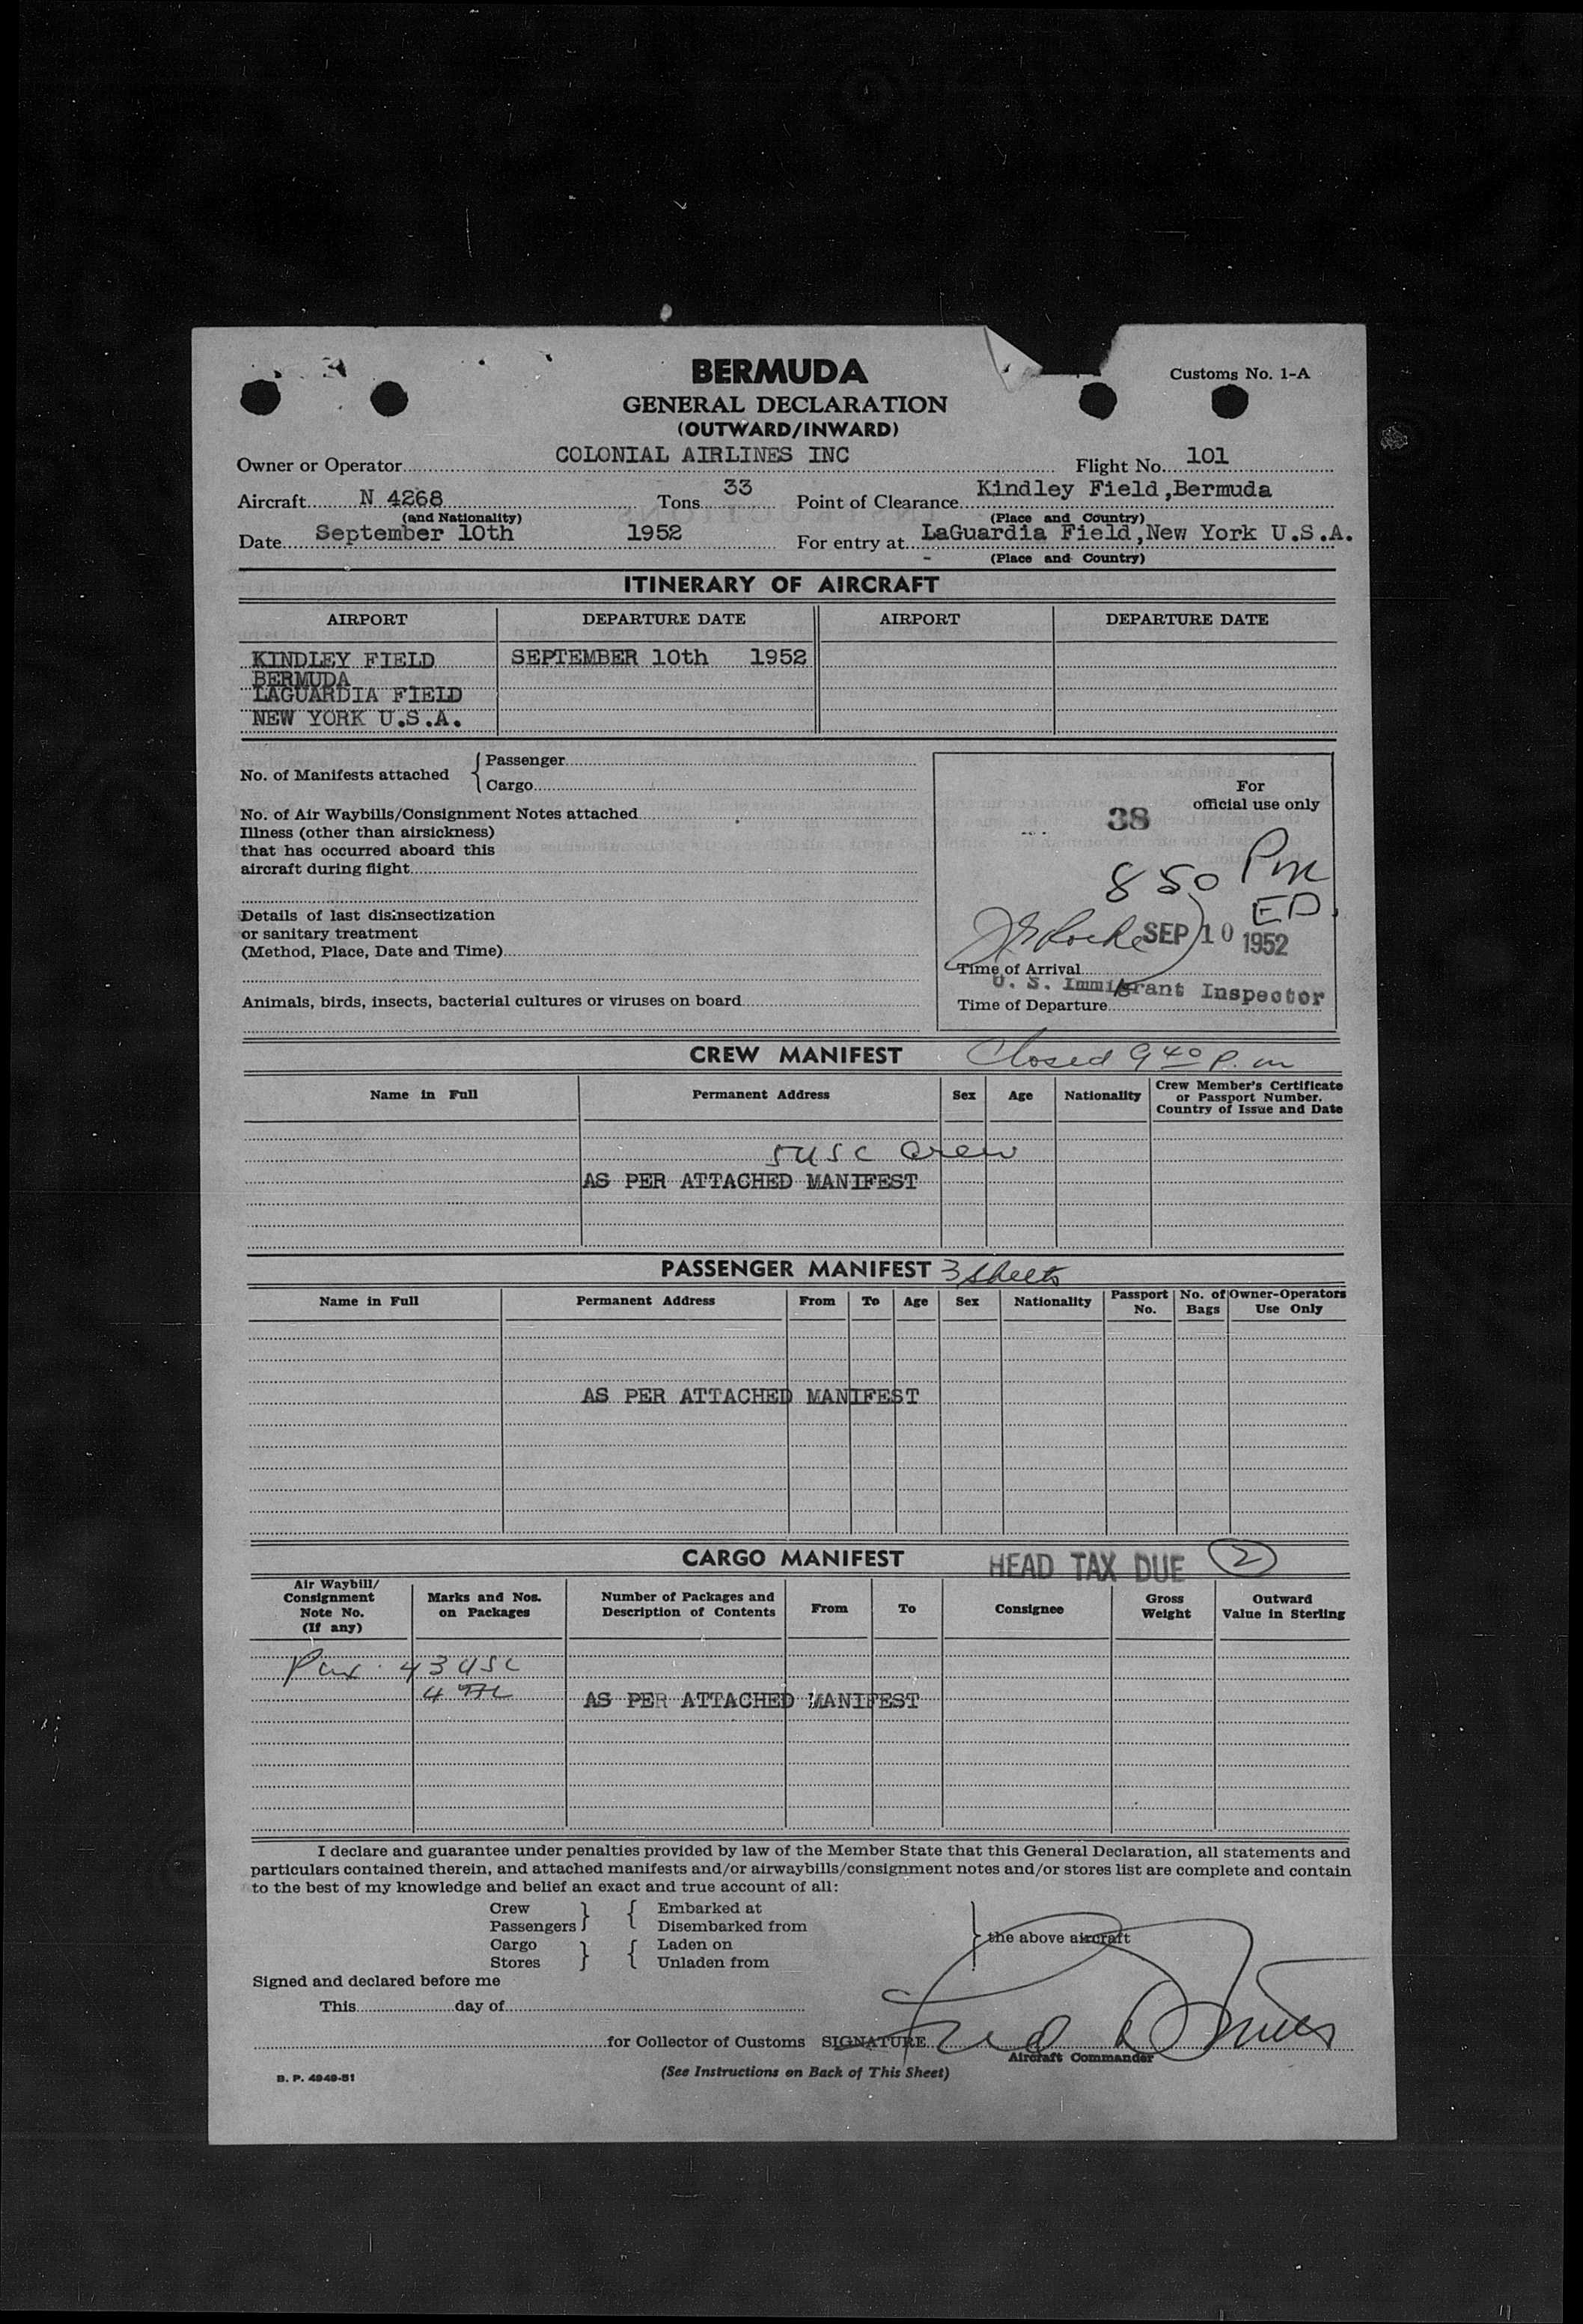 BERMUDA
Customs No. 1-A
GENERAL DECLARATION
(OUTWARD/INWARD)
Owner or Operator COLONIAL AIRLINES INC Flight No. 101
Aircraft N 4268 Tons 33 Point of Clearance Kindley Field,Bermuda
(and Nationality) (Place and Country)
Date September 10th 1952 For entry at LaGuardia Field,New York U.S.A.
(Place and Country)
ITINERARY OF AIRCRAFT
AIRPORT DEPARTURE DATE AIRPORT DEPARTURE DATE
KINDLEY FIELD SEPTEMBER 10th 1952
BERMUDA
LAGUARDIA FIELD
NEW YORK U.S.A.
No. of Manifests attached { Passenger
Cargo
No. of Air Waybills/Consignment Notes attached
Illness (other than airsickness)
that has occurred aboard this
aircraft during flight
Details of last disinsectization
or sanitary treatment
(Method, Place, Date and Time)
Animals, birds, insects, bacterial cultures or viruses on board
For
official use only
38
8 50 PM
ED
SEP 10 1952
Time of Arrival
U. S. Immigrant Inspector
Time of Departure
CREW MANIFEST Closed 9 40 P. m
Name in Full Permanent Address Sex Age Nationality Crew Member's Certificate
or Passport Number.
Country of Issue and Date
5 USC Crew
AS PER ATTACHED MANIFEST
PASSENGER MANIFEST 3 sheets
Name in Full Permanent Address From To Age Sex Nationality Passport No. No. of Bags Owner-Operators Use Only
AS PER ATTACHED MANIFEST
CARGO MANIFEST HEAD TAX DUE 2
Air Waybill/
Consignment
Note No.
(If any)
Marks and Nos.
on Packages
Number of Packages and
Description of Contents
From To Consignee
Gross
Weight
Outward
Value in Sterling
Pax. 43 USC
4
AS PER ATTACHED MANIFEST
I declare and guarantee under penalties provided by law of the Member State that this General Declaration, all statements and
particulars contained therein, and attached manifests and/or airwaybills/consignment notes and/or stores list are complete and contain
to the best of my knowledge and belief an exact and true account of all:
Crew } { Embarked at
Passengers Disembarked from
} the above aircraft
Cargo } { Laden on
Stores Unladen from
Signed and declared before me
This day of
for Collector of Customs SIGNATURE
Aircraft Commander
(See Instructions on Back of This Sheet)
B. P. 4949-51